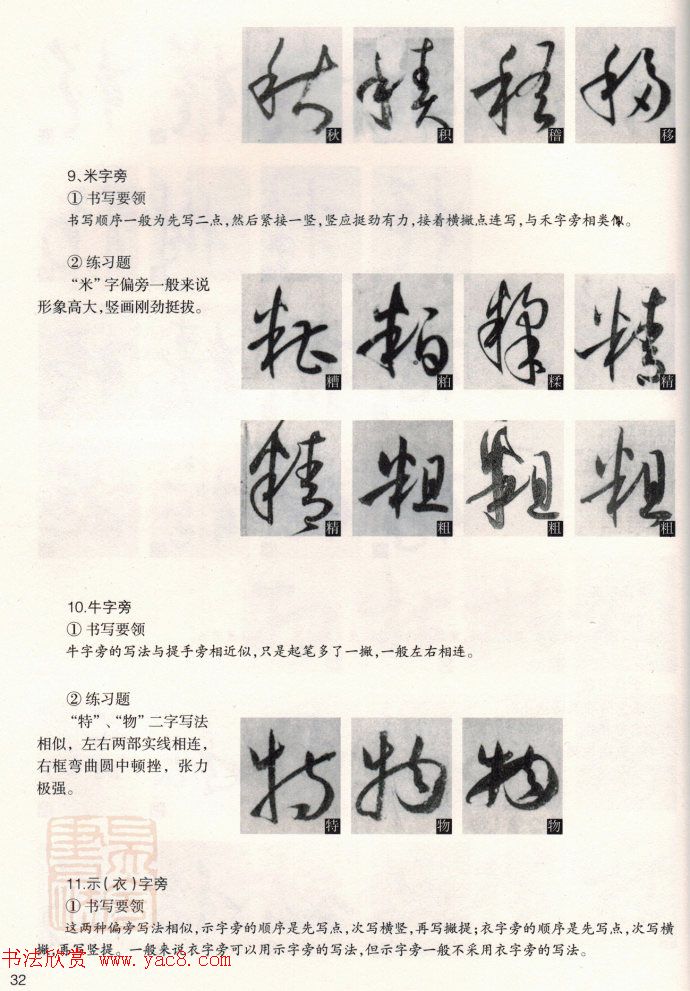 秋 积 稽 移
9、米字旁
① 书写要领
书写顺序一般为先写二点,然后紧接一竖,竖应挺劲有力,接着横撇点连写,与禾字旁相类似。
② 练习题
“米”字偏旁一般来说
形象高大,竖画刚劲挺拔。
糟 粕 糅 精
精 粗 粗 粗
10.牛字旁
① 书写要领
牛字旁的写法与提手旁相近似,只是起笔多了一撇,一般左右相连。
② 练习题
“特”、“物”二字写法
相似，左右两部实线相连,
右框弯曲圆中顿挫，张力
极强。
特 物 物
11.示(衣)字旁
① 书写要领
这两种偏旁写法相似,示字旁的顺序是先写点,次写横竖,再写撇提;衣字旁的顺序是先写点,次写横
撇,再写竖提。一般来说衣字旁可以用示字旁的写法,但示字旁一般不采用衣字旁的写法。
书法欣赏 www.yac8.com
32